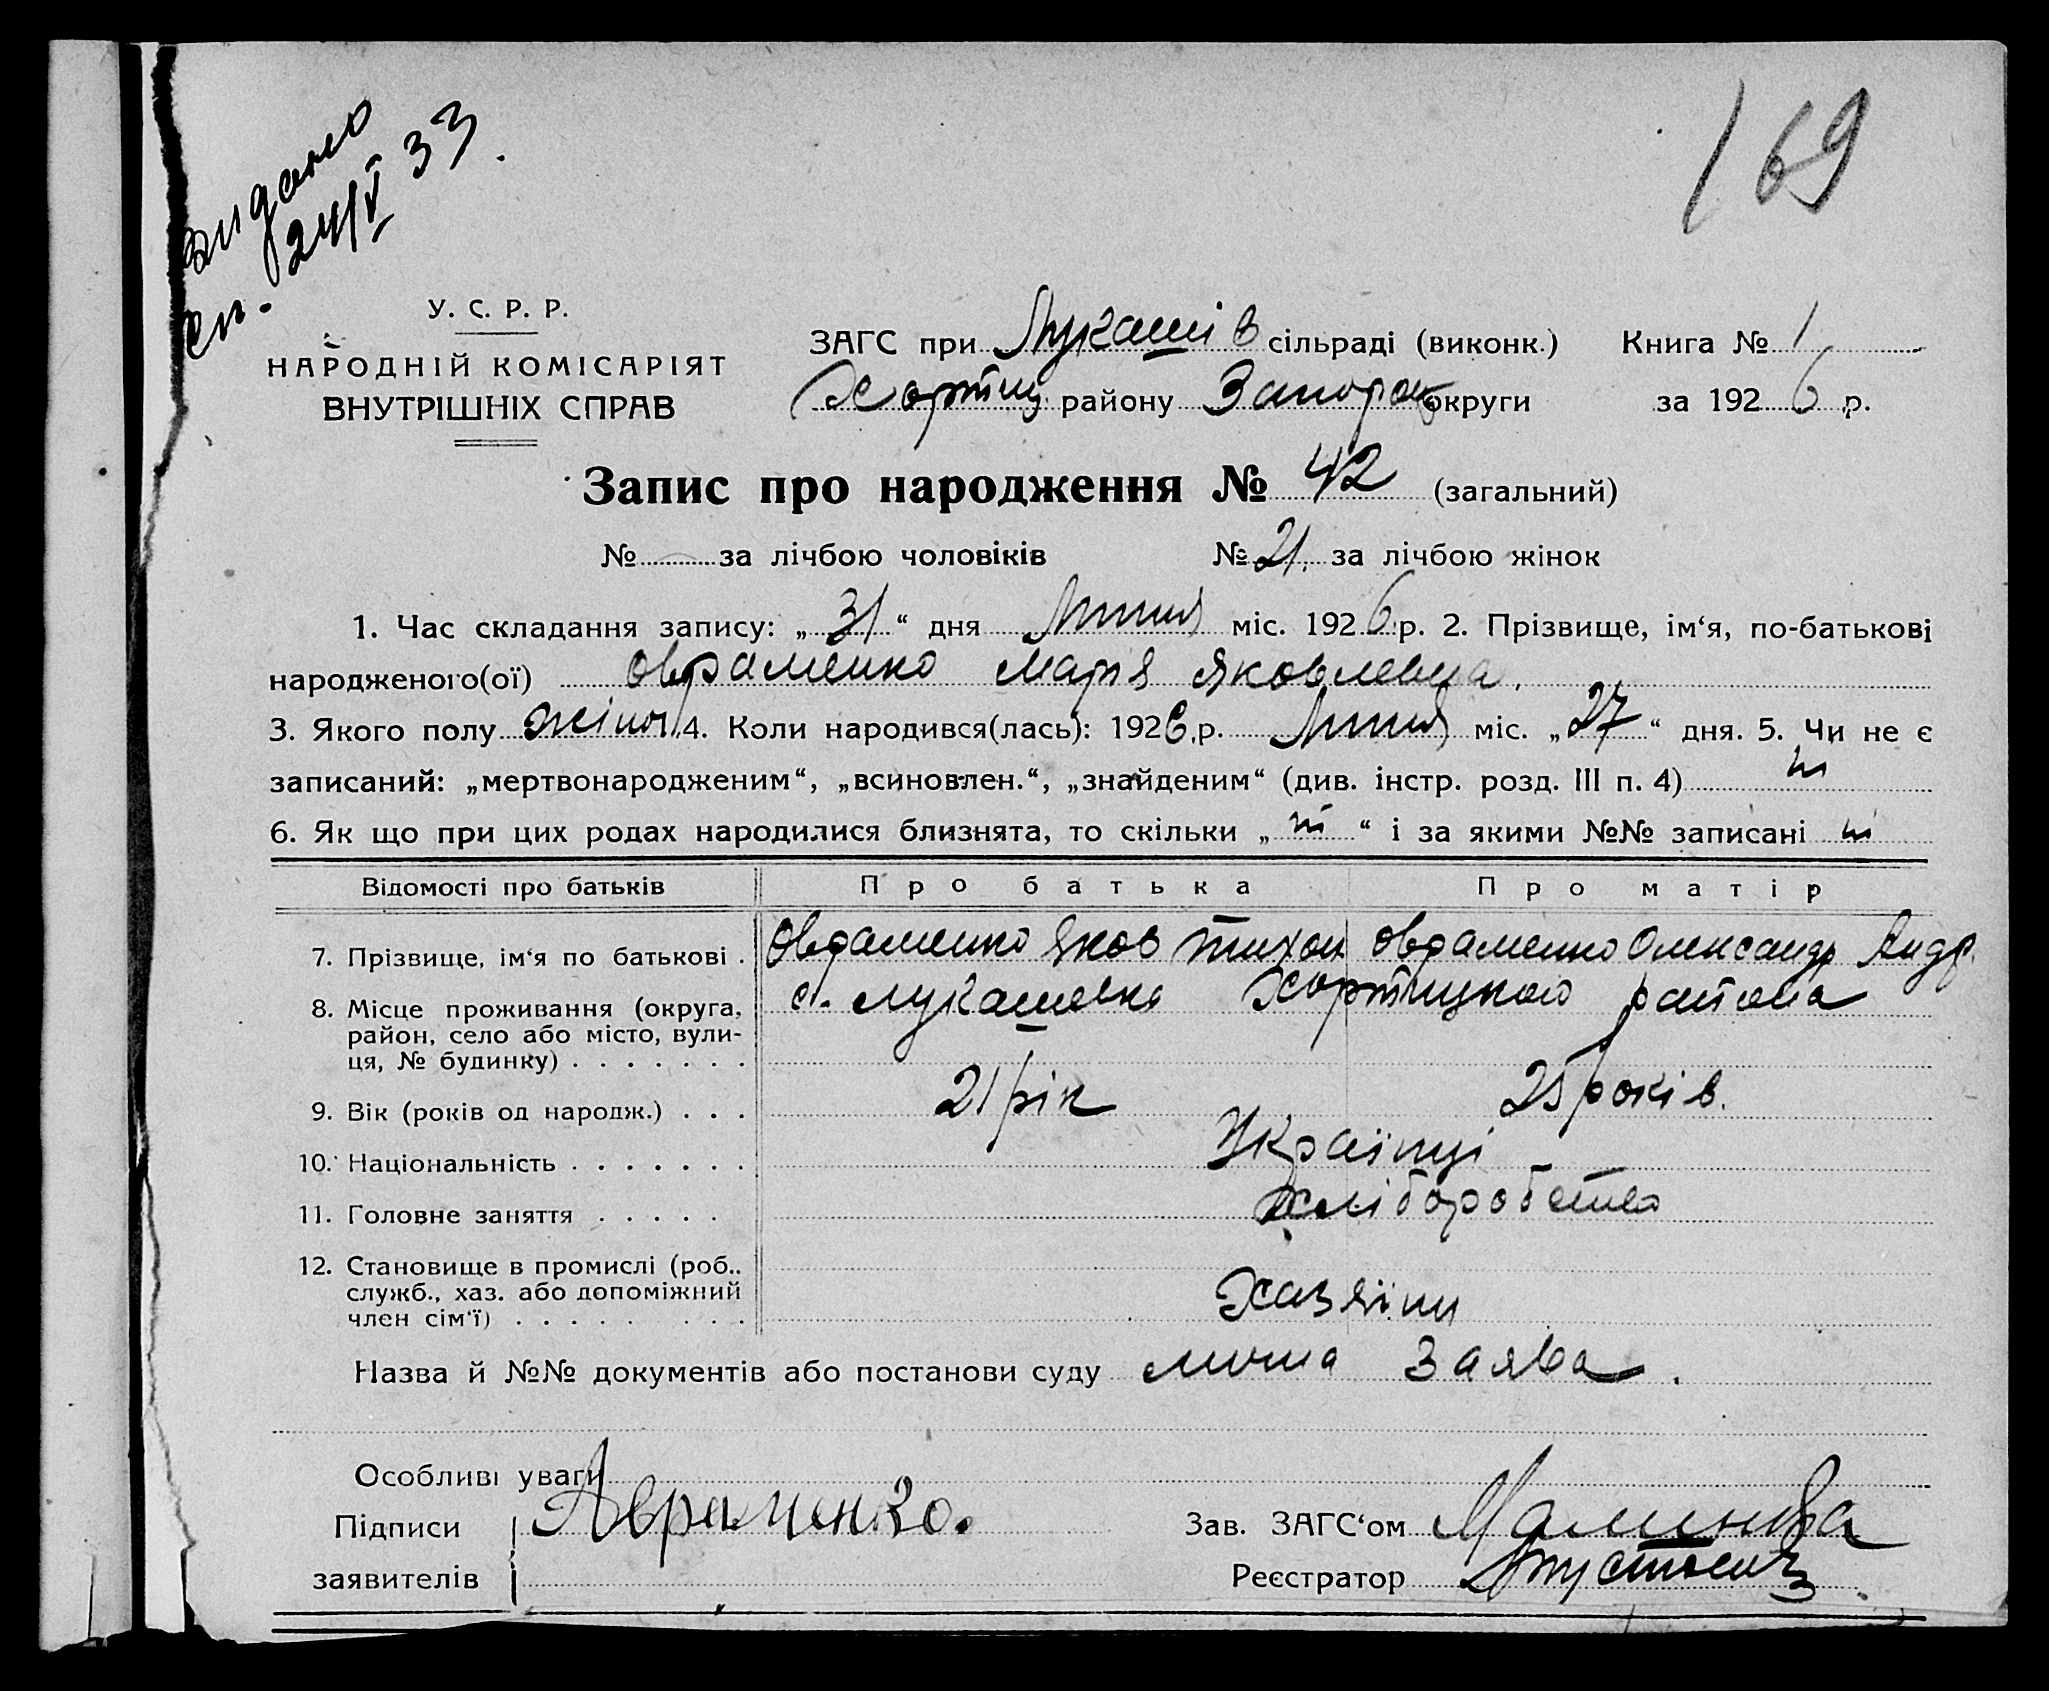 видано
сп. 24/V 33.
169
У. С. Р. Р.
НАРОДНІЙ КОМІСАРІЯТ
ВНУТРІШНІХ СПРАВ
ЗАГС при Лукашів сільраді (виконк.) Книга № 1
Хортиц району Запорож округи за 1926 р.
Запис про народження № 42 (загальний)
№ за лічбою чоловіків № 21. за лічбою жінок
1. Час складання запису: „ 31 “ дня Липня міс. 1926 р. 2. Прізвище, ім‘я, по-батькові
народженого(ої) Овраменко Марія Яковлевна.
3. Якого полу жіноч 4. Коли народився(лась): 1926 р. Липня міс. „ 27 “ дня. 5. Чи не є
записаний: „мертвонародженим“, „всиновлен.“, „знайденим“ (див. інстр. розд. III п. 4) ні
6. Як що при цих родах народилися близнята, то скільки „ ні “ і за якими №№ записані ні
Відомості про батьків Про батька Про матір
7. Прізвище, ім‘я по батькові . Овраменко Яков Тихон Овраменко Олександр Андр.
8. Місце проживання (округа, с. Лукашевка Хортицкого района
район, село або місто, вули-
ця, № будинку) . . . . . . .
9. Вік (років од народж.) . . . 21 рік 25 років.
10. Національність . . . . . . . Українці
11. Головне заняття . . . . . Хліборобство
12. Становище в промислі (роб..
служб., хаз. або допоміжний
член сім‘ї) . . . . . . . . Хазяїни
Назва й №№ документів або постанови суду лична заява.
Особливі уваги
Підписи Авраменко. Зав. ЗАГС‘ом
заявителів Реєстратор